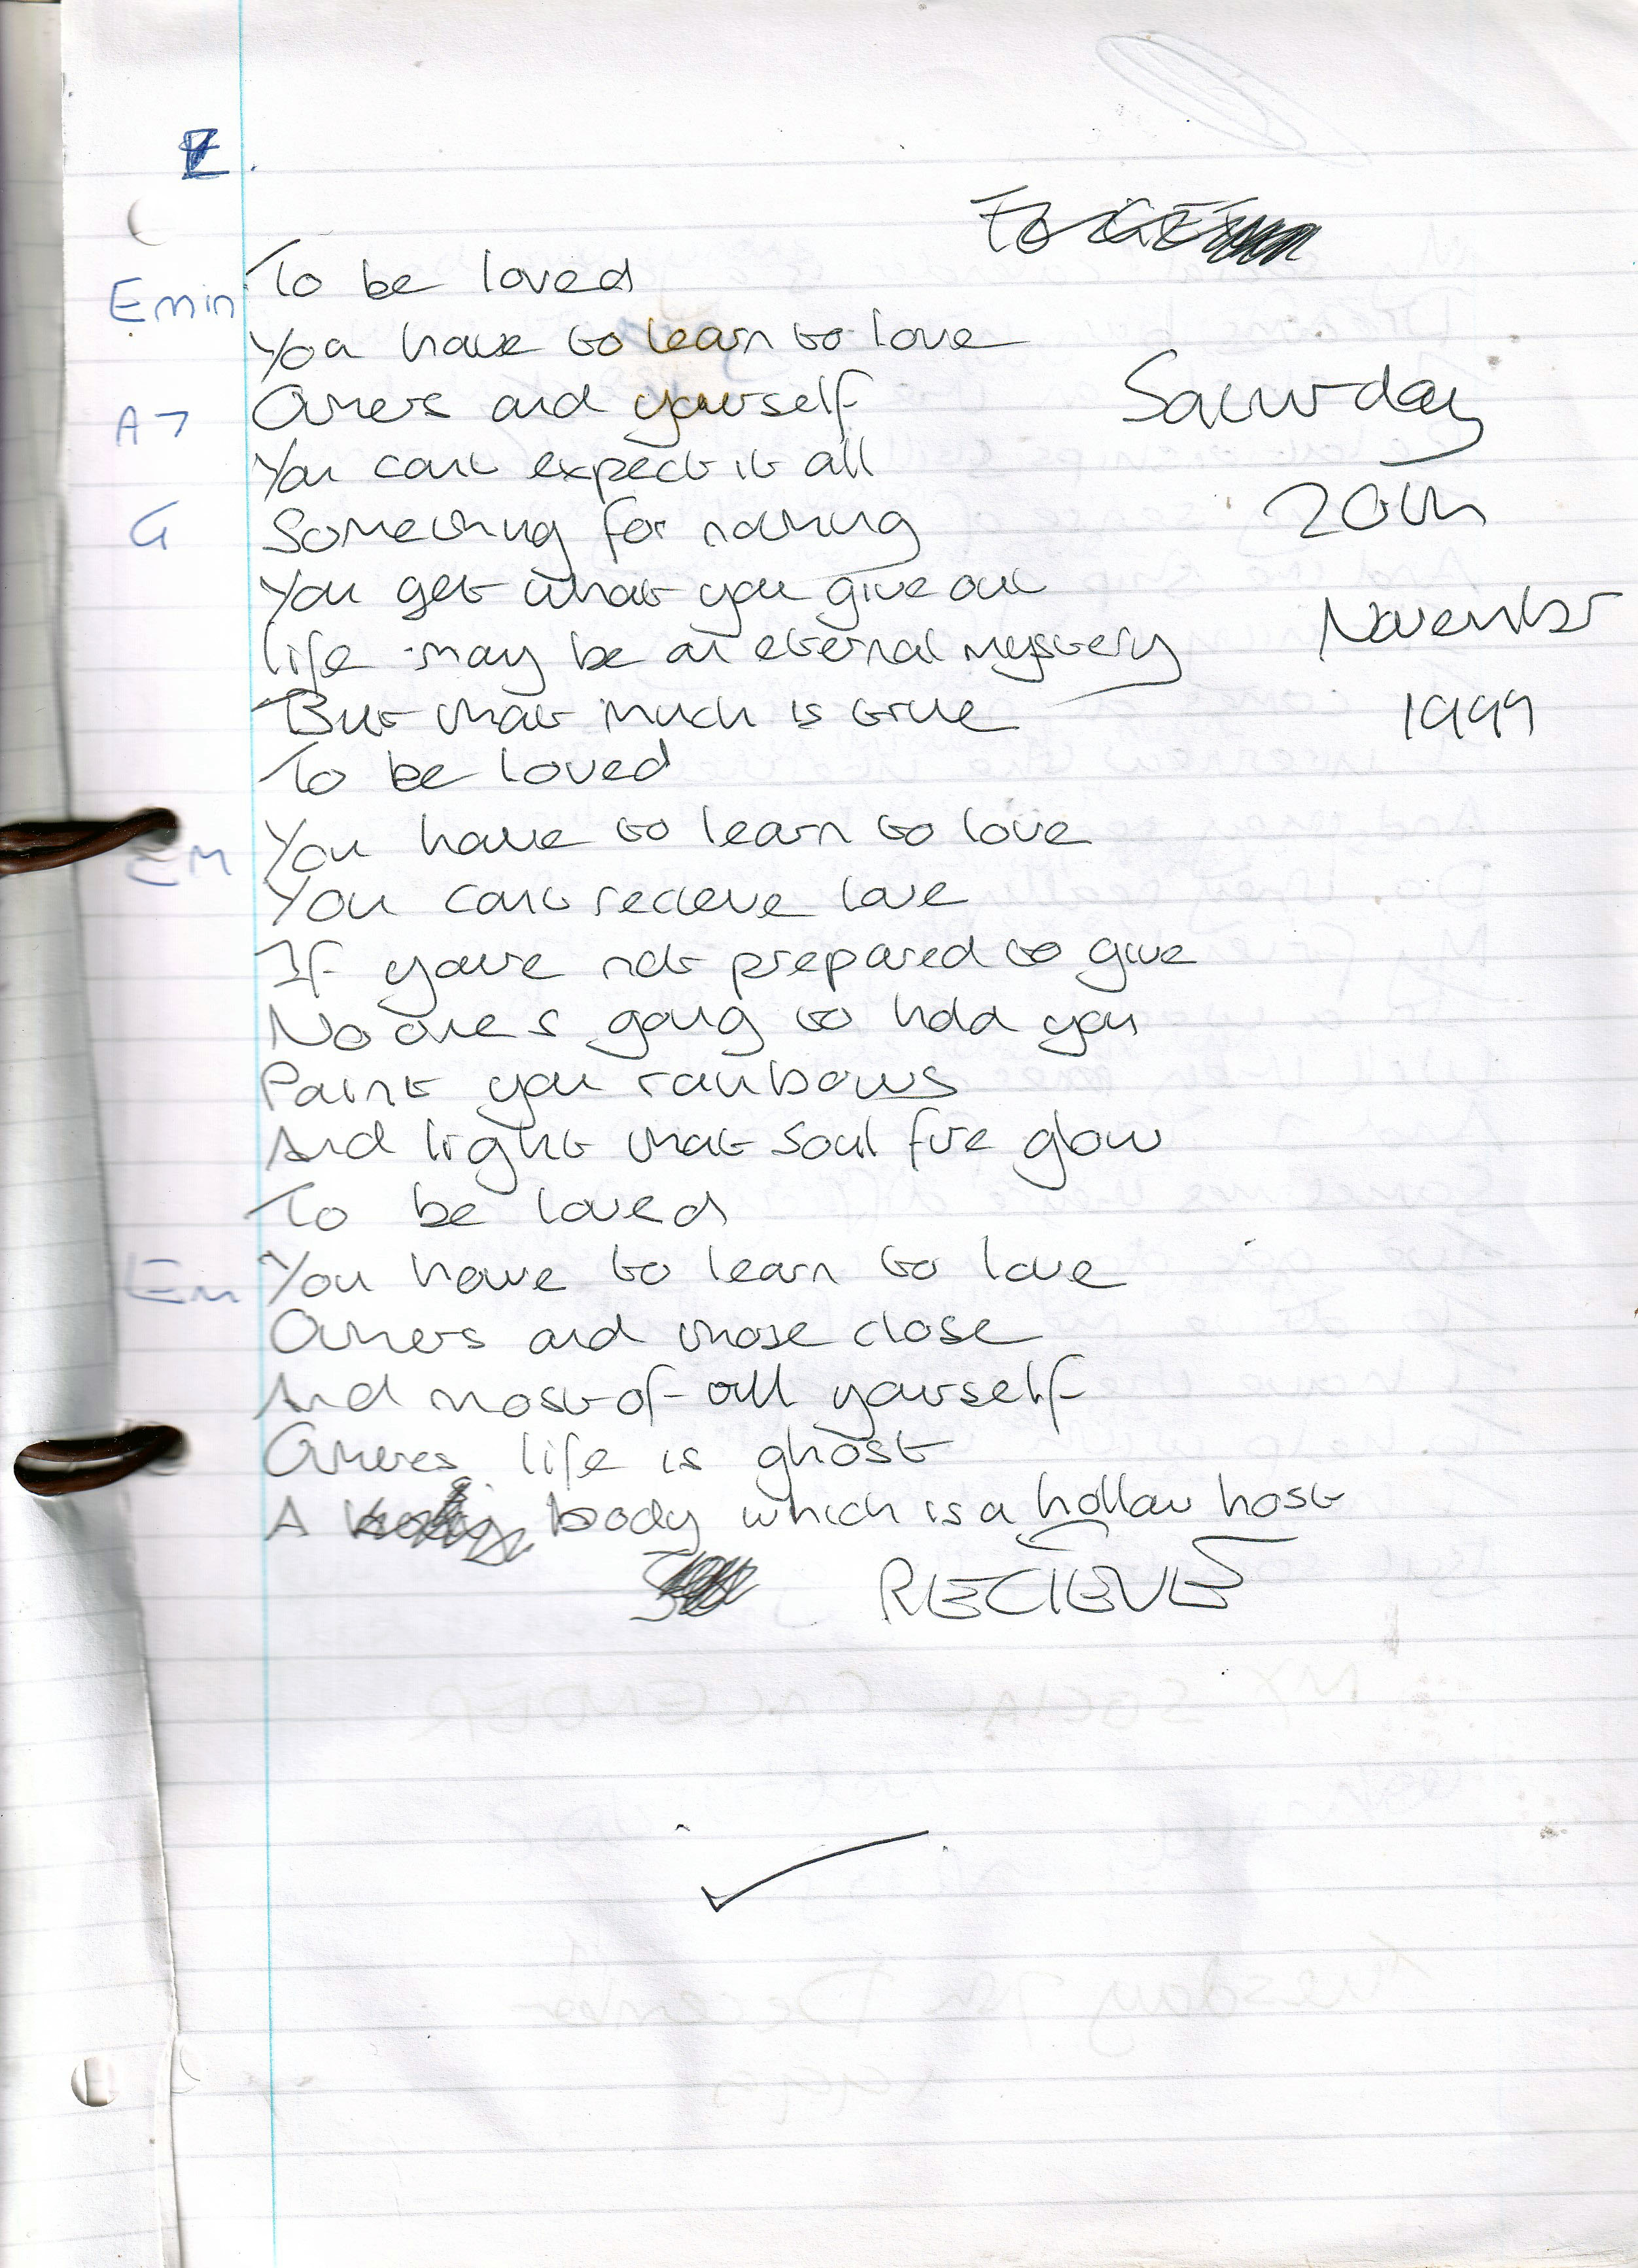 E.
To be loved
Emin
You have to learn to love
Others and yourself
A7
Saturday
You cant expect it all
20th
G
Something for nothing
You get what you give out
November
life may be an eternal mystery
But that much is true
1999
To be loved
You have to learn to love
EM
You cant recieve love
If youre not prepared to give
No one s going to hold you
Paint you rainbows
And light that soul fire glow
To be loved
You have to learn to love
Em
Others and those close
And most of all yourself
Others life is ghost
A body which is a hollow host
RECIEVE